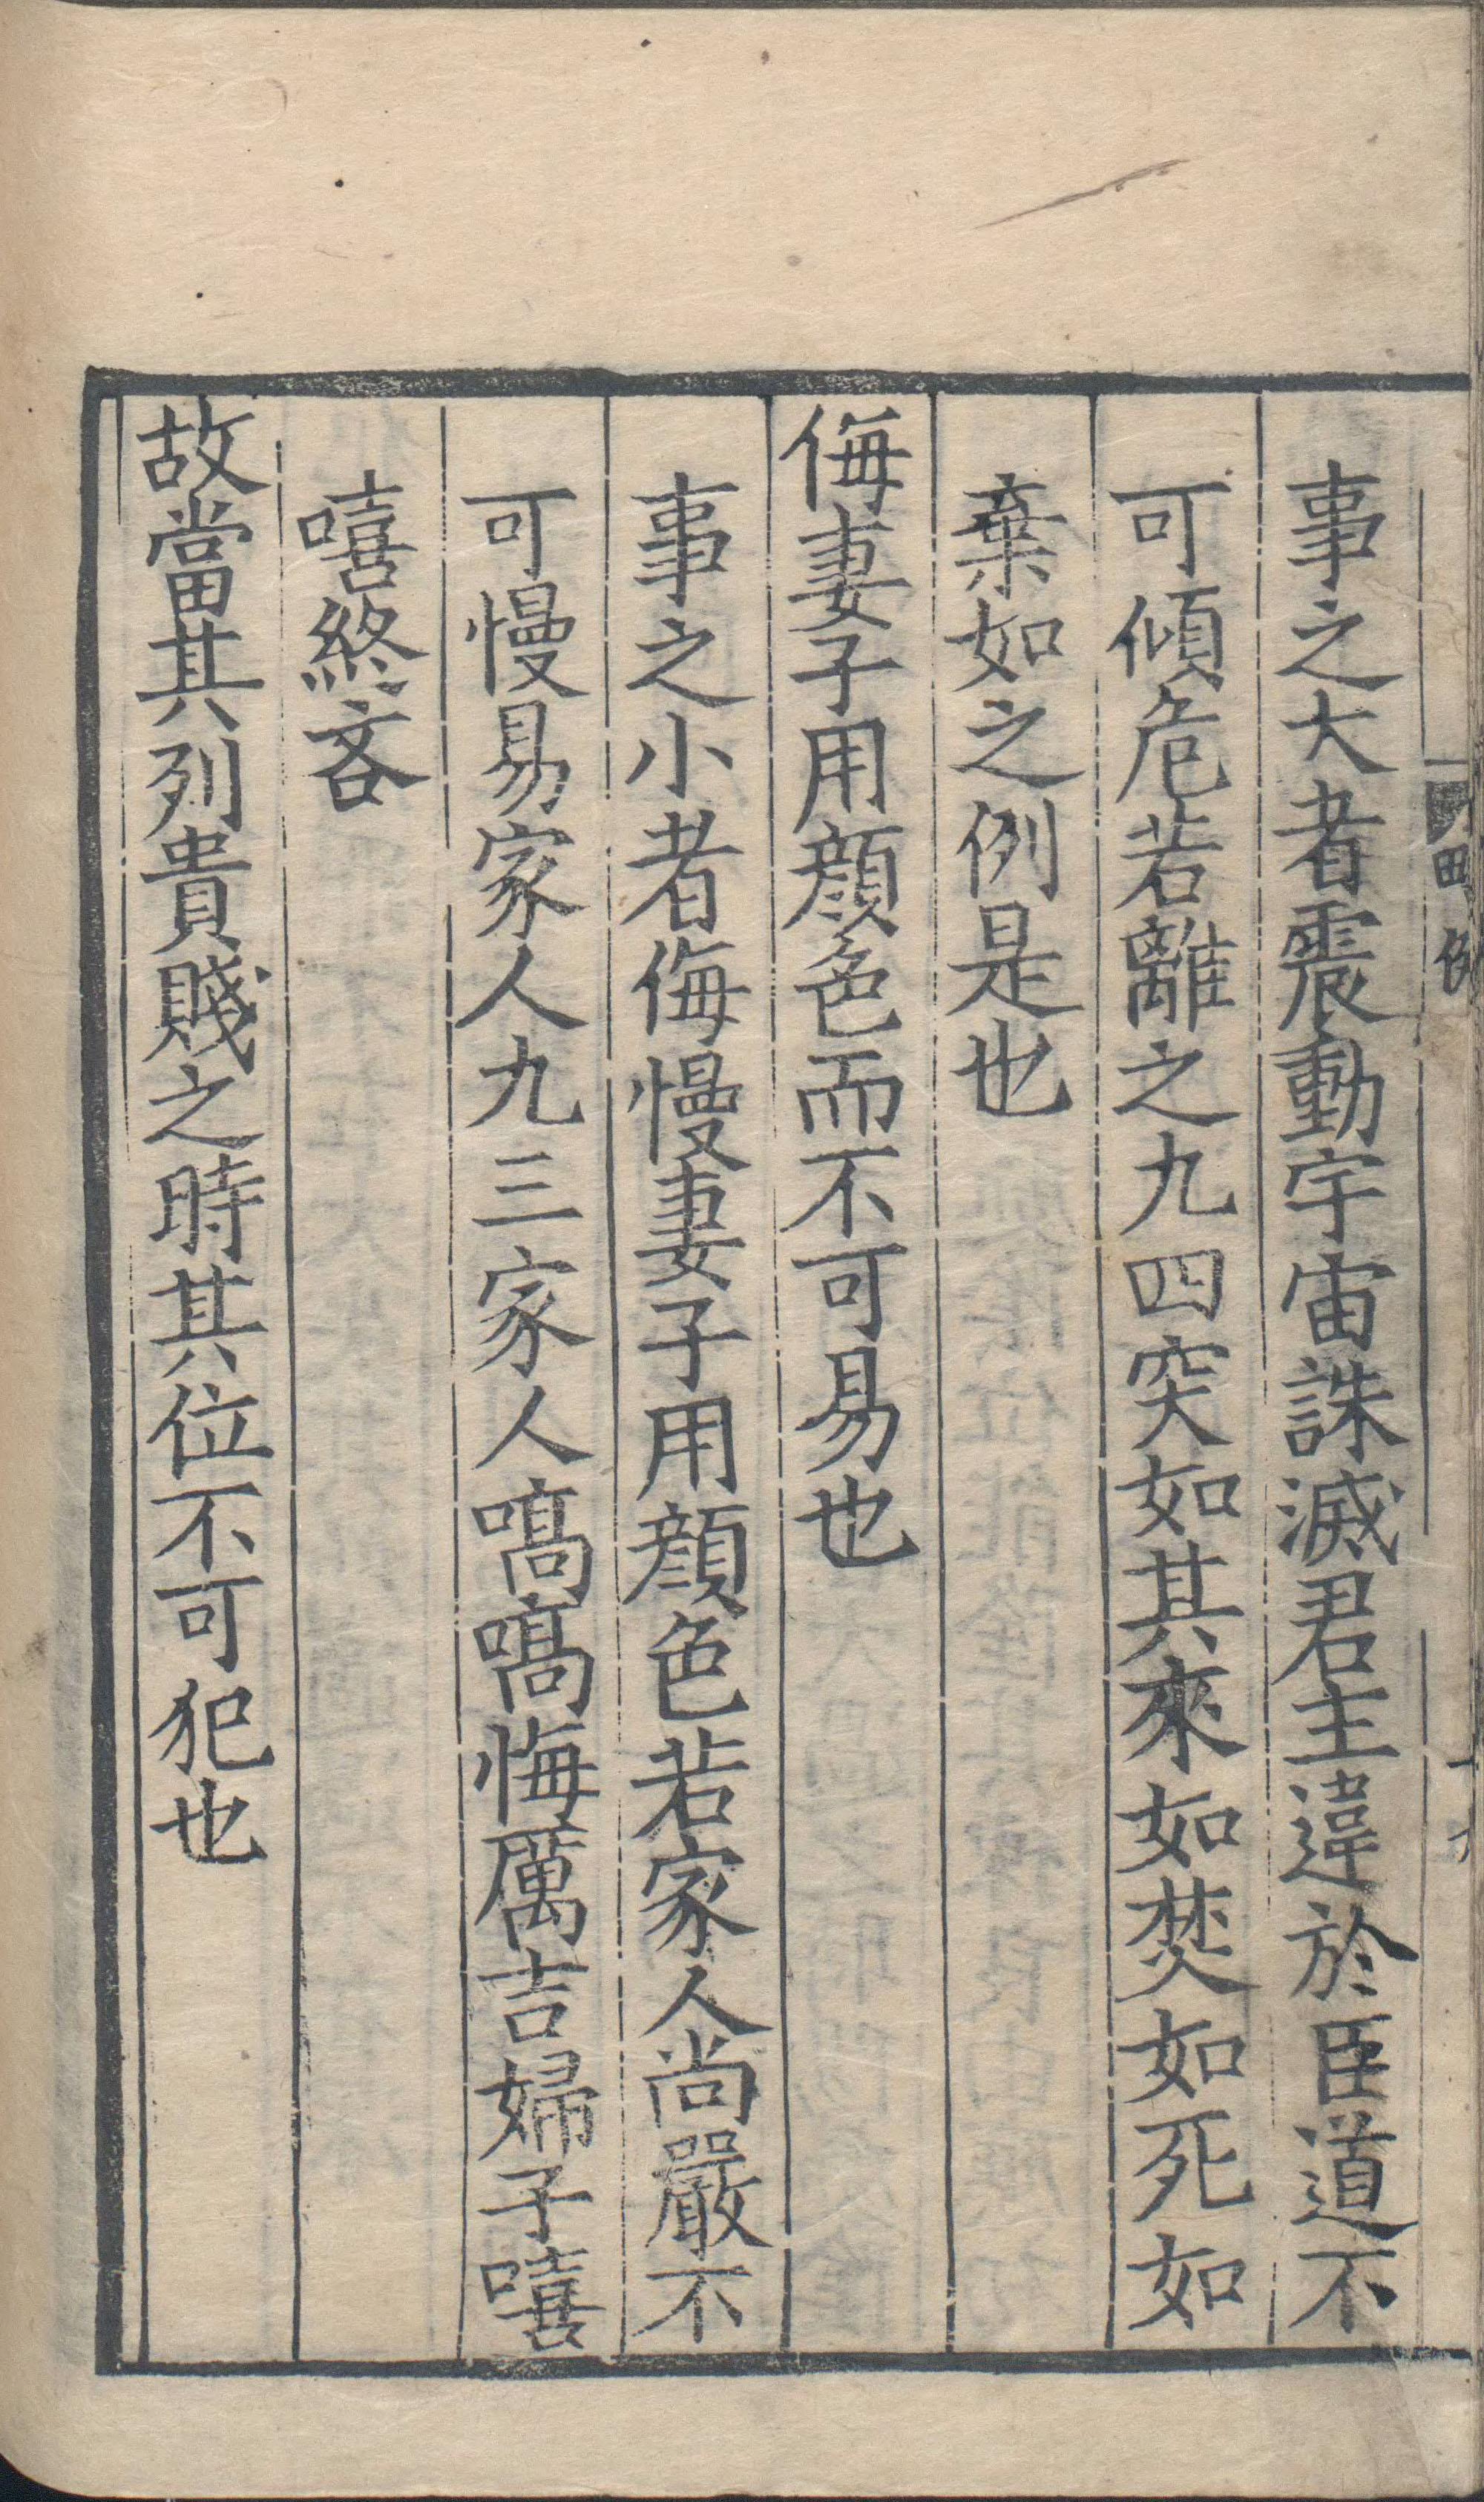 事之大者震動宇宙誅滅君主違於臣道不
可傾危若離之九四突如其來如焚如死如
棄如之例是也
侮妻子用顔色而不可易也
事之小者侮慢妻子用顔色若家人尚嚴不
可慢易家人九三家人嗃嗃悔厲吉婦子嘻
嘻終吝
故當其列貴賤之時其位不可犯也